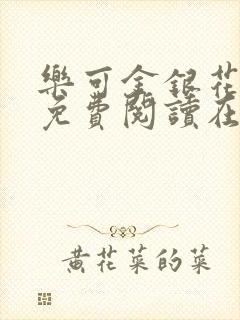 樂可金銀花
免費閱讀在
黃花菜的菜